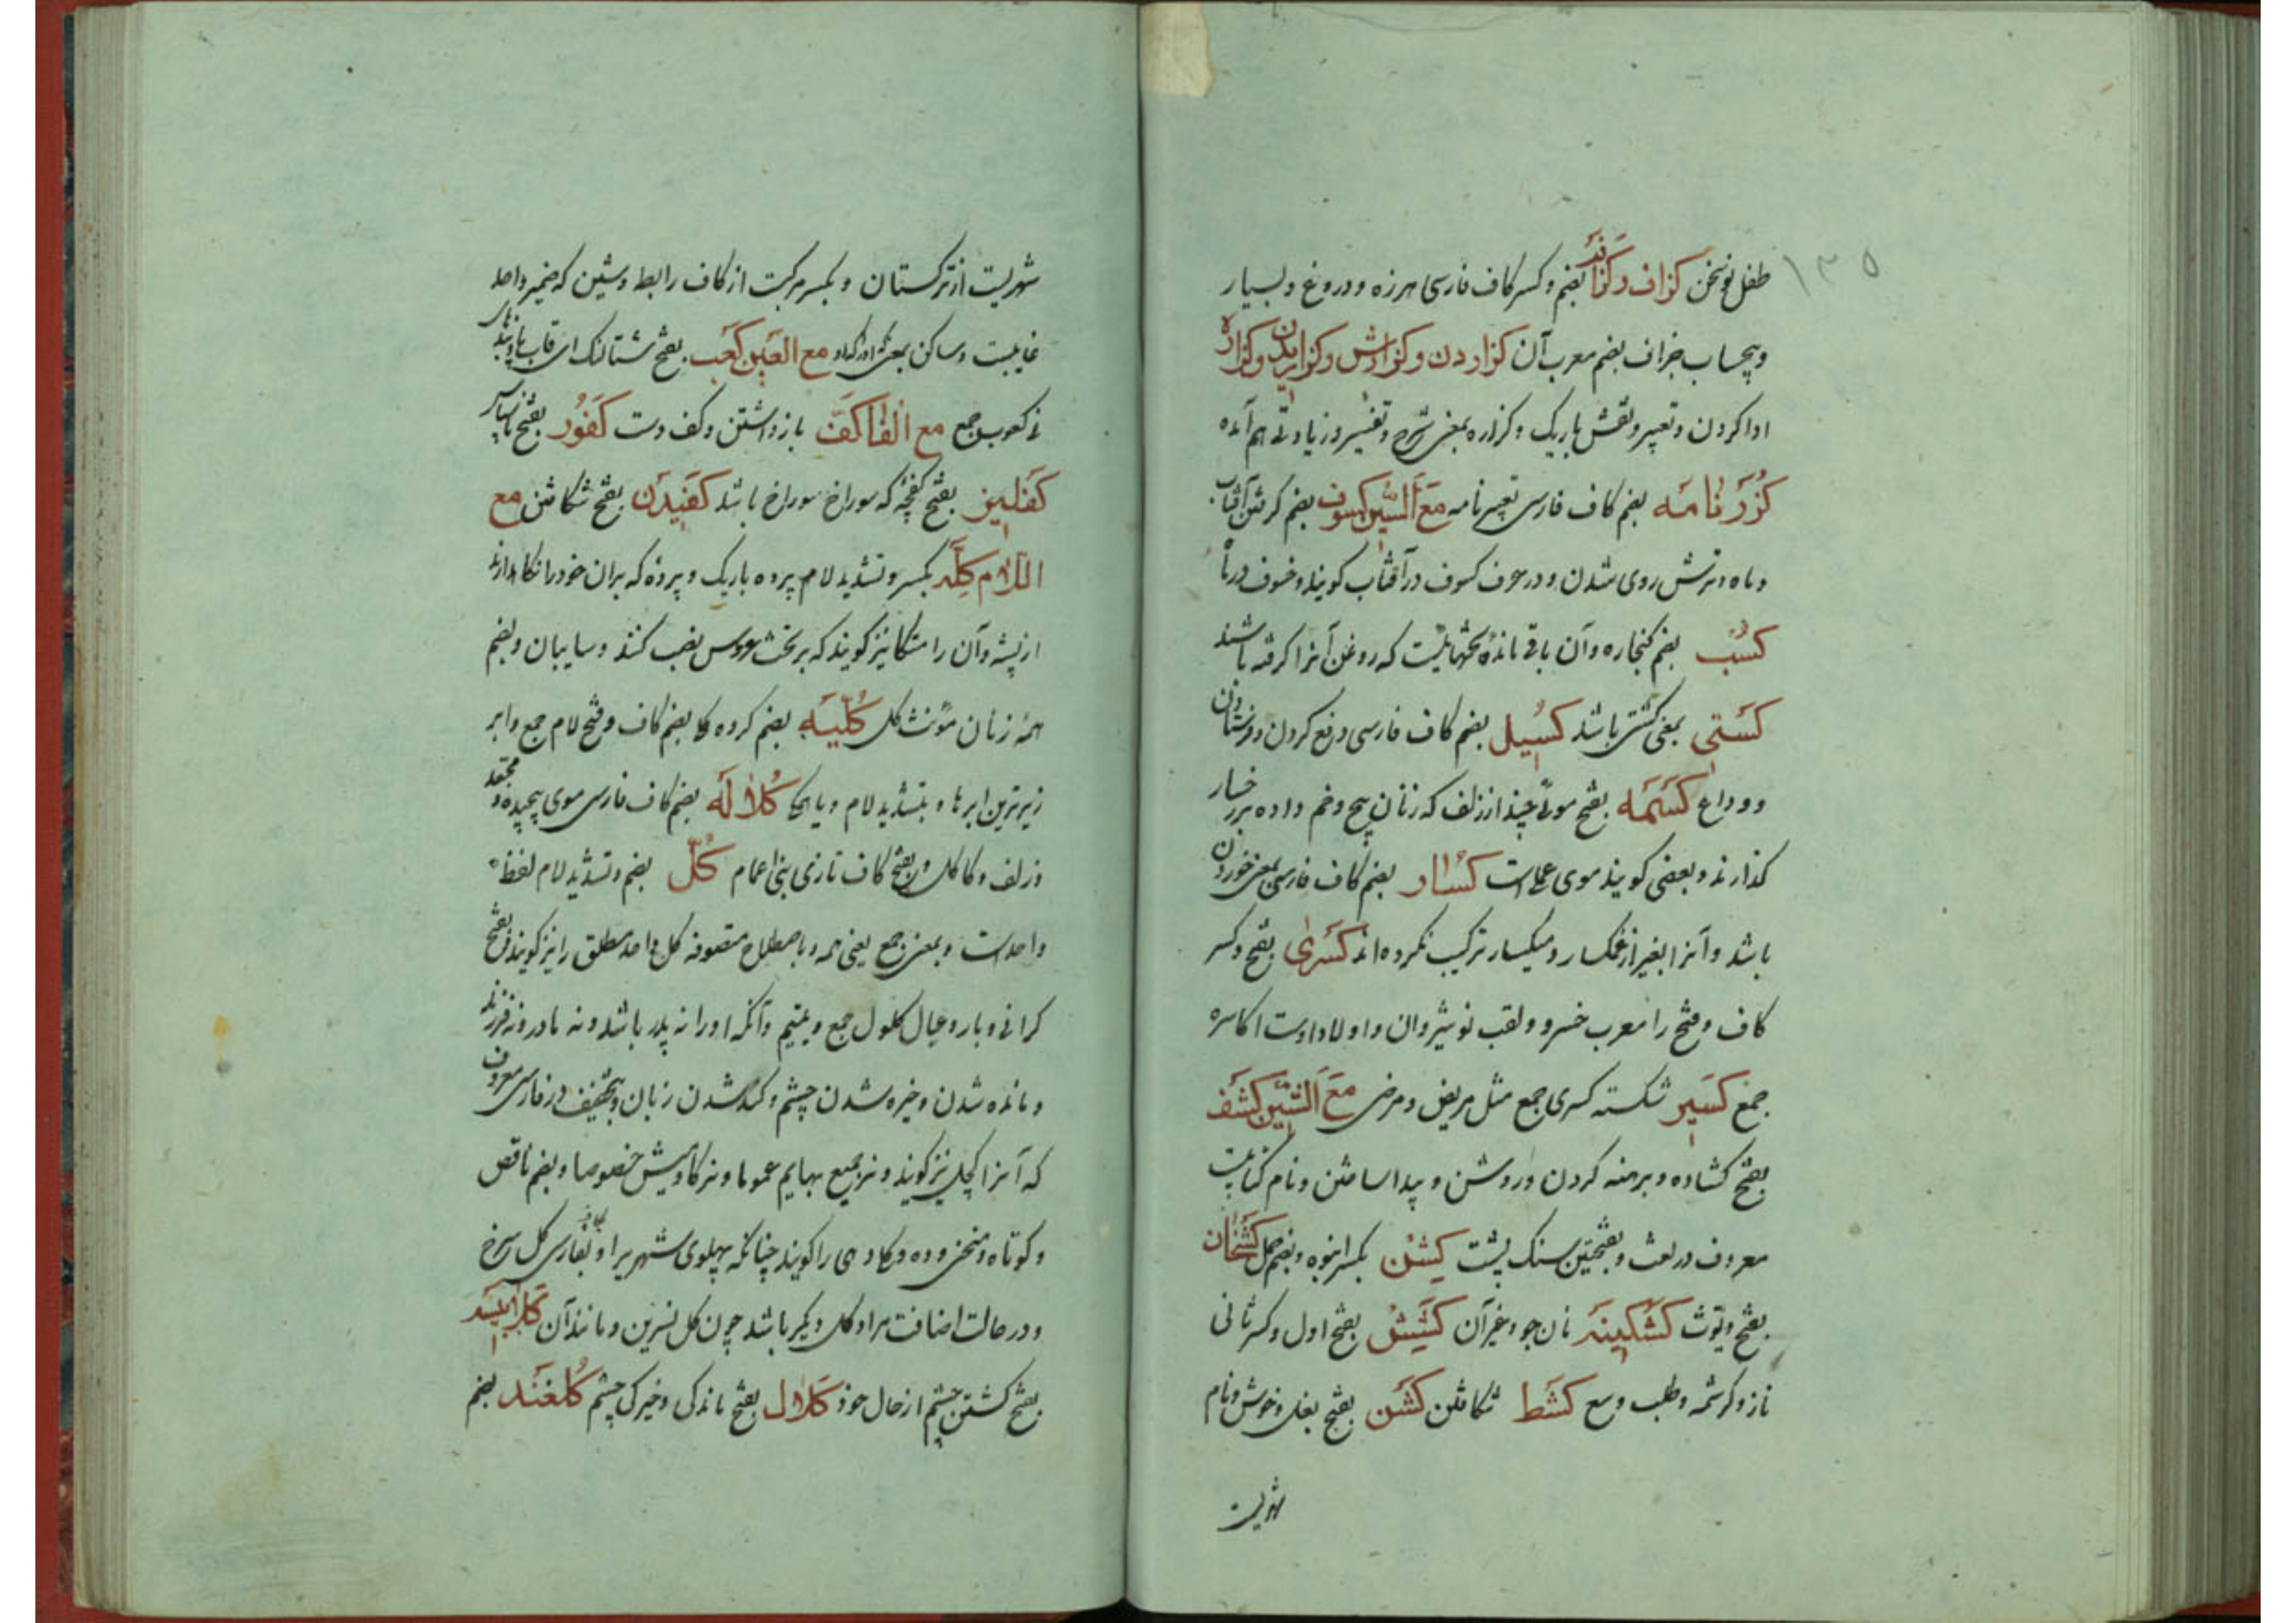 ۱۳۵
طفل نوسخن کزاف و کزافه بضم و کسر کاف فارسی هرزه و دروغ و بسیار
و بیحساب جزاف بضم معرب آن کزاردن و کزارش و کزاریدن و کزاره
ادا کردن و تعبیر و نقش باریک و کزاره بمعنی شرح و تفسیر و زیادتی هم آمده
کزرنامه بضم کاف فارسی تعبیر نامه مع السین کسوف بضم کرفتن آفتاب
و ماه و ترش روی شدن و در عرف کسوف در آفتاب کویند و خسوف در ماه
کسب بضم کنجاره و آن باقی مانده تخمهاییست که روغن آنرا کرفته باشند
کستی بمعنی کشتی باشد کسیل بضم کاف فارسی دفع کردن و فرستادن
و وداع کسمه بفتح موئی چند از زلف که زنان پیچ و خم داده بر رخسار
کذارند و بعضی کویند موی عملی است کسار بضم کاف فارسی بمعنی خوردن
باشد و آنرا بغیر از غمکسار و میکسار ترکیب نکرده اند کسری بفتح و کسر
کاف و فتح را معرب خسرو و لقب نوشیروان و اولاد اوست اکاسره
جمع کسیر شکسته کسری جمع مثل مریض و مرضی مع الشین کشف
بفتح کشاده و برهنه کردن و روشن و پیدا ساختن و نام کتابیست
معروف در لغت و بفتحتین سنک پشت کشن بکسر انبوه و بضم حمل کشخان
بفتح دیوث کشکینه نان جو و غیر آن کشش بفتح اول و کسر ثانی
ناز و کرشمه و طلب وسع کشط شکافتن کشن بفتح بغل و خوش و نام
شهریست
شهریست از ترکستان و بکسر مرکبست از کاف رابط و شین که ضمیر واحد
غایبست و ساکن بمعنی که او را مع العین کعب بفتح شتالنک ای قاب پا و بندهای
نی کعوب جمع مع الفا کف باز داشتن و کف دست کفور بفتح ناسپاس
کفلیز بفتح کفچه که سوراخ سوراخ باشد کفیدن بفتح شکافتن مع
اللام کله بکسر و تشدید لام پرده باریک و پرده که بران خود را نکاهدارند
از پشه و آن را متکا نیز کویند که بر تخت عروس نصب کنند و سایبان و بضم
همه زنان مؤنث کل کلیه بضم کرده کلی بضم کاف و فتح لام جمع و ابر
زیرترین ابرها و بتشدید لام و یا همکی کلاله بضم کاف فارسی موی پیچیده و مجعد
و زلف و کاکل و بفتح کاف تازی بنی اعمام کل بضم و تشدید لام لفظ
واحدست و بمعنی جمع یعنی همه و باصطلاح متصوفه کل واحد مطلق را نیز کویند و بفتح
کرانی و بار و عیال کلول جمع و یتیم و آنکه او را نه پدر باشد و نه مادر و نه فرزند
و مانده شدن و خیره شدن چشم و کند شدن زبان و بتخفیف در فارسی معروف
که آنرا کچل نیز کویند و نر جمیع بهایم عموما و نر کاومیش خصوصا و بضم ناقص
و کوتاه و منحنی و ده و کلادهی را کویند چنانکه پهلوی شهریرا و بفارسی کل سرخ
و در حالت اضافت مراد کل دیکر باشد چون کل نسرین و مانند آن کلاپیسه
بفتح کشتن چشم از حال خود کلال بفتح ماندکی و خیرکی چشم کلغند بضم